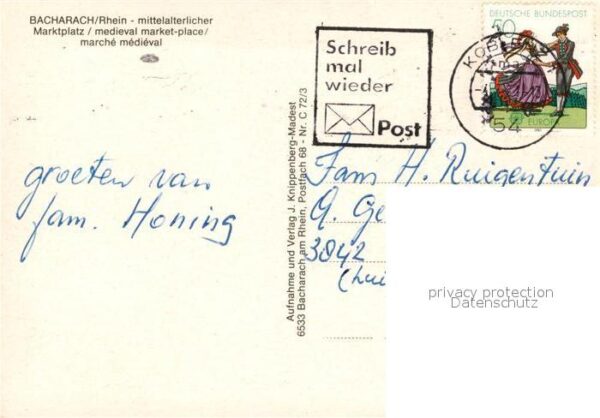 BACHARACH/Rhein - mittelalterlicher
Marktplatz / medieval market-place/
marché médiéval
groeten van
fam. Honing
Aufnahme und Verlag J. Knippenberg-Madest
6533 Bacharach am Rhein, Postfach 68 - Nr. C 72/3
Schreib
mal
wieder
Post
KOBLE
54
DEUTSCHE BUNDESPOST
50
EUROPA
Fam H. Ruigentuin
A. Ge
3842
privacy protection
Datenschutz